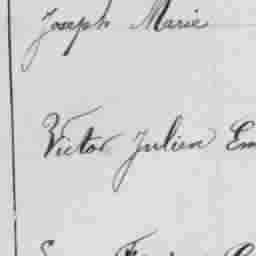 Joseph Marie
Victor Julien Em